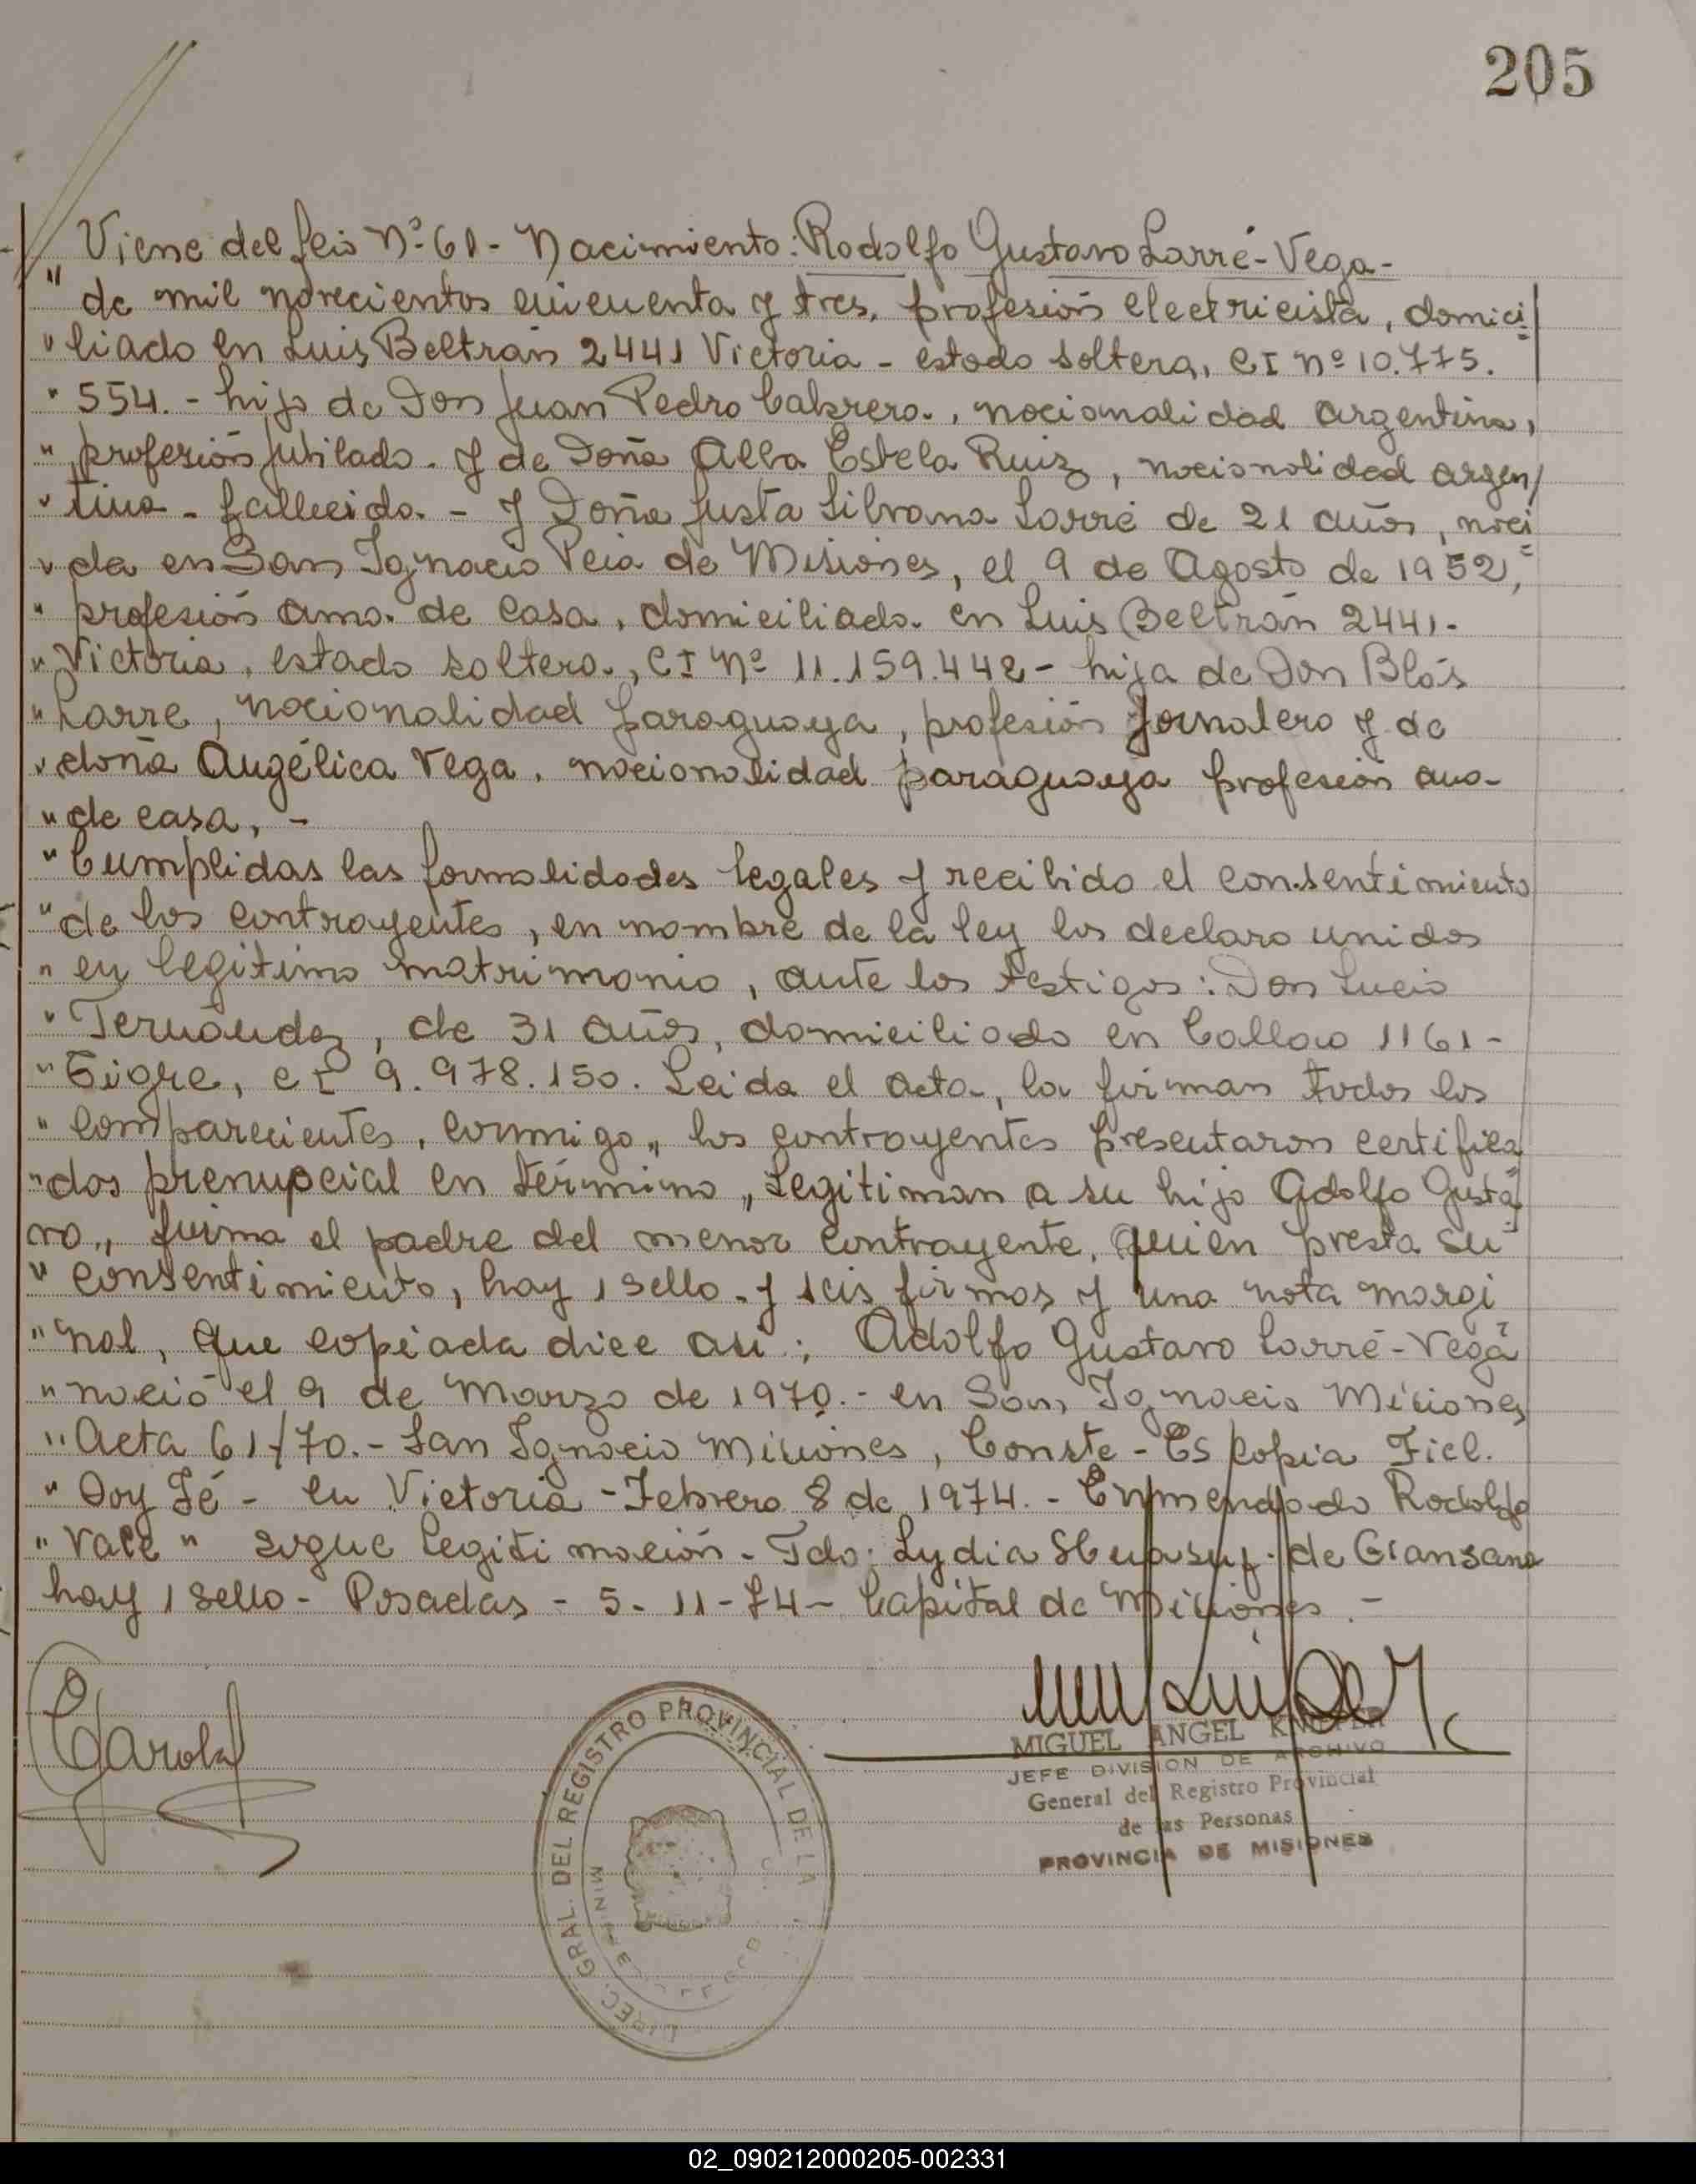 205
Viene del folio Nº 61 - Nacimiento: Rodolfo Gustavo Larré-Vega -
" de mil novecientos cincuenta y tres, profesión electricista, domici
" liado en Luis Beltrán 2441 Victoria - estado soltero, CI nº 10.775.
" 554. - hijo de Don Juan Pedro Cabrera., nacionalidad argentina,
" profesión jubilado. y de Doña Alba Estela Ruiz, nacionalidad argen/
" tina - fallecida. - y Doña Justa Silvana Larré de 21 años, naci
" da en San Ignacio Pcia de Misiones, el 9 de Agosto de 1952,
" profesión ama. de casa, domiciliada. en Luis Beltrán 2441.
" Victoria, estado soltera., CI Nº 11.159.442 - hija de Don Blás
" Larre, nacionalidad paraguaya, profesión jornalero y de
" doña Angélica Vega, nacionalidad paraguaya profesión ama-
" de casa, -
" Cumplidas las formalidades legales y recibido el consentimiento
" de los contrayentes, en nombre de la ley los declaro unidos
" en legitimo matrimonio, ante los testigos: Don Lucio
" Fernández, de 31 años, domiciliado en Callao 1161 -
" Tigre, CI 9.978.150. Leida el acta, la firman todos los
" comparecientes, conmigo,, los contrayentes presentaron certifica
" dos prenupcial en término,, Legitiman a su hijo Adolfo Gusta
vo,, firma el padre del menor contrayente, quien presta su
" consentimiento, hay 1 sello - y seis firmas y una nota margi
" nal, que copiada dice asi: Adolfo Gustavo Larré-Vega
" nació el 9 de Marzo de 1970. - en San Ignacio Misiones
" Acta 61/70. - San Ignacio Misiones, Conste - Es Copia Fiel.
" Doy Fé - en Victoria - Febrero 8 de 1974. - Enmendado Rodolfo
" Vale " sigue legitimación - Fdo: Lydia de Giansana
hay 1 sello - Posadas - 5 - 11 - 74 - Capital de Misiones. -
MIGUEL ANGEL
JEFE DIVISION DE ARCHIVO
General del Registro Provincial
de las Personas
PROVINCIA DE MISIONES
DIREC. GRAL. DEL REGISTRO PROVINCIAL DE LA
02_090212000205-002331